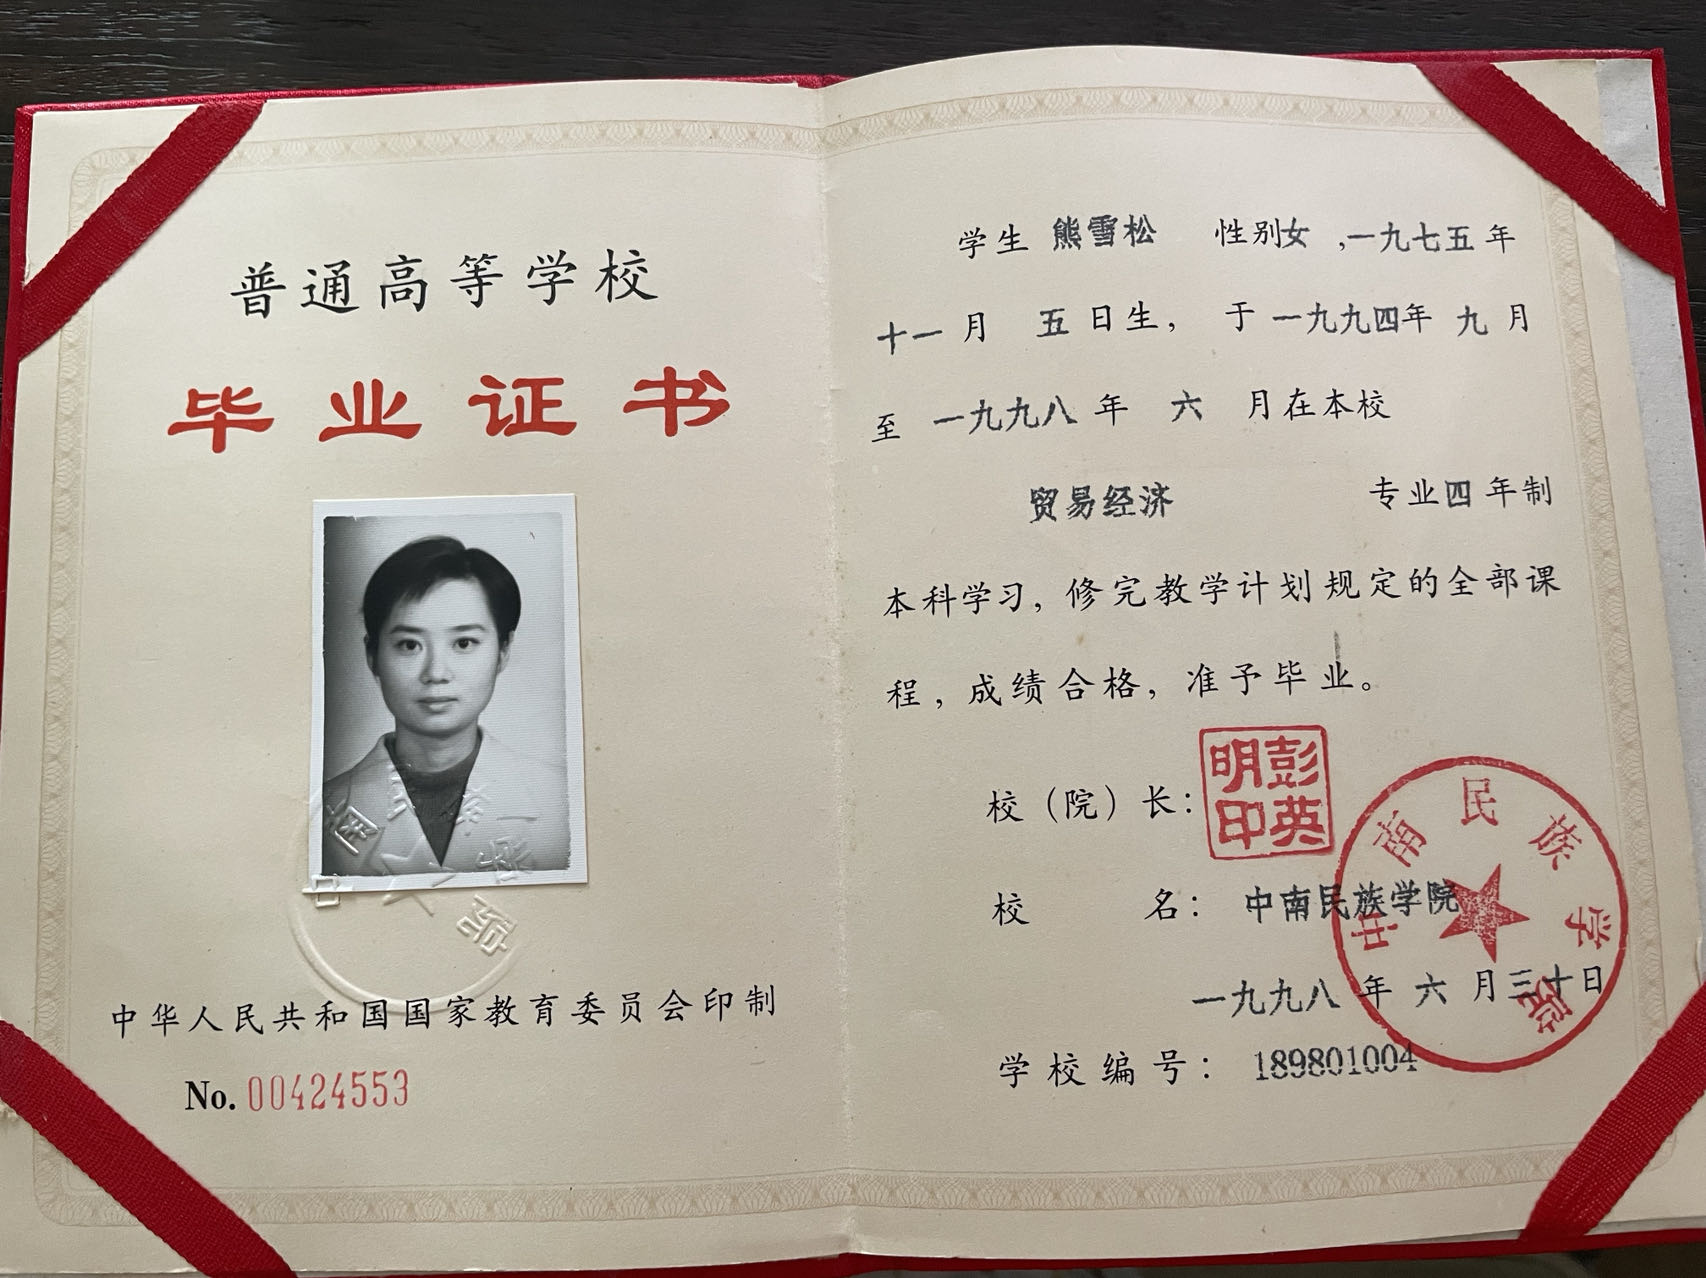 普通高等学校
毕业证书
中华人民共和国国家教育委员会印制
No. 00424553
学生 熊雪松 性别女 ,一九七五年
十一月 五日生， 于一九九四年 九月
至 一九九八 年 六 月在本校
贸易经济 专业四年制
本科学习，修完教学计划规定的全部课
程，成绩合格，准予毕业。
校（院）长：
彭英明印
校 名： 中南民族学院
中南民族学院
一九九八 年 六 月三十日
学校编号： 189801004